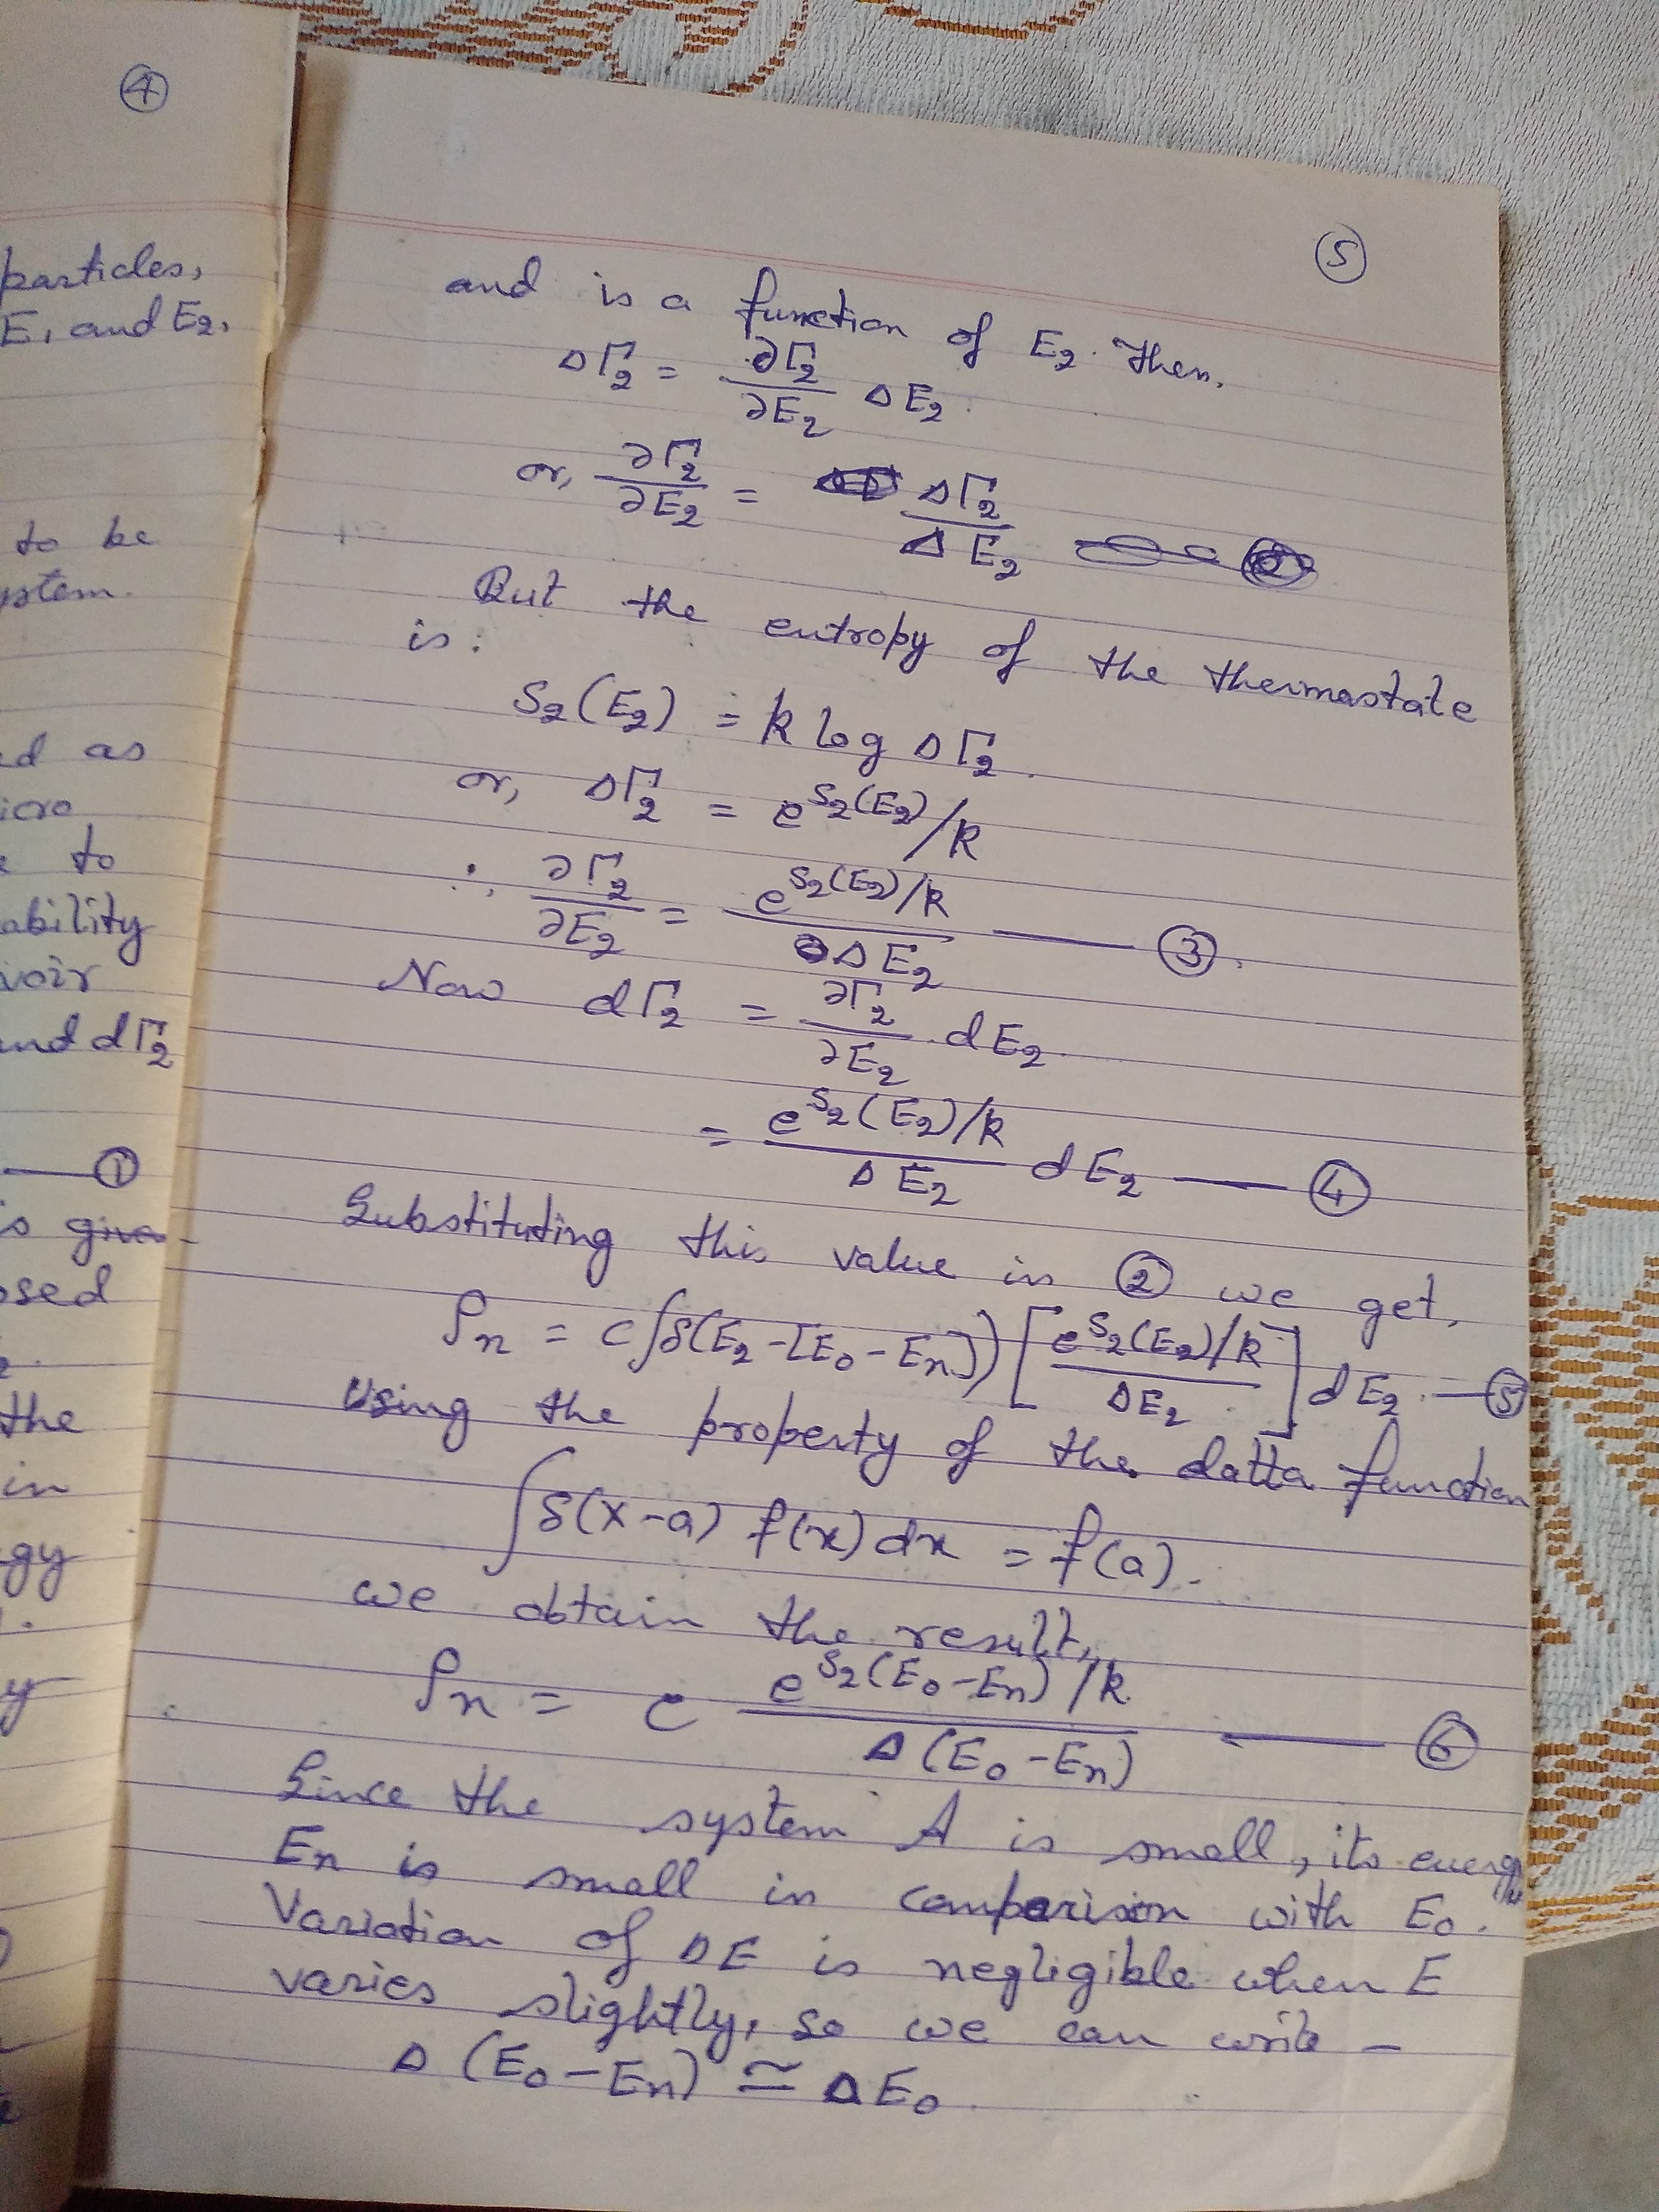 ④
particles,
E₁ and E₂,
to be
ystem.
ed as
icro
to
ability
voir
and dΓ₂
—— ①
is given
osed
the
in
gy
y
⑤
and is a function of E₂. Then,
ΔΓ₂ = ∂Γ₂/∂E₂ ΔE₂.
or, ∂Γ₂/∂E₂ = ΔΓ₂/ΔE₂
But the entropy of the thermostate
is:
S₂(E₂) = k log ΔΓ₂.
or, ΔΓ₂ = e^S₂(E₂)/k
∴ ∂Γ₂/∂E₂ = e^S₂(E₂)/k / ΔE₂ —— ③.
Now dΓ₂ = ∂Γ₂/∂E₂ . dE₂.
= e^S₂(E₂)/k / ΔE₂ dE₂ —— ④
Substituting this value in ② we get,
ρn = c∫δ(E₂-[E₀-En]) [e^S₂(E₂)/k / ΔE₂] dE₂. — ⑤
Using the property of the datta function
∫δ(x-a) f(x) dx = f(a).
we obtain the result,
ρn = c e^S₂(E₀-En)/k / Δ(E₀-En) —— ⑥
Since the system A is small, its energy
En is small in comparision with E₀.
Variation of ΔE is negligible when E
varies slightly, so we can write -
Δ (E₀-En) ≅ ΔE₀.